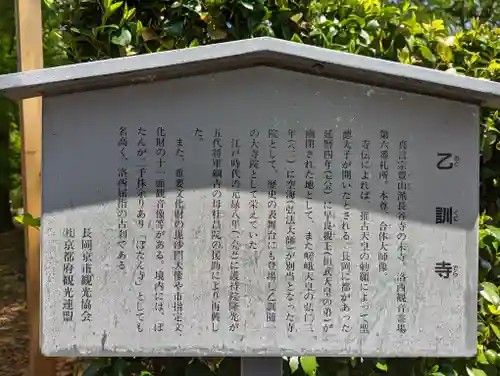 乙訓寺
おと くに でら
真言宗豊山派長谷寺の末寺。洛西観音霊場
第六番札所。本尊、合体大師像。
寺伝によれば、推古天皇の勅願によって聖
徳太子が開いたとされる。長岡に都があった
延暦四年(七八五)に早良親王(桓武天皇の弟)が
幽閉された地として、また嵯峨天皇の弘仁二
年(八一一)に空海(弘法大師)が別当となった寺
院として、歴史の表舞台にも登場し乙訓随一
の大寺院として栄えていた。
江戸時代の元禄八年(一六九五)に護持院隆光が
五代将軍綱吉の母桂昌院の援助により再興し
た。
また、重要文化財の毘沙門天像や市指定文
化財の十一面観音像等がある。境内には、ぼ
たんが二千株余りあり「ぼたん寺」としても
名高く、洛西屈指の古刹である。
長岡京市観光協会
(社)京都府観光連盟